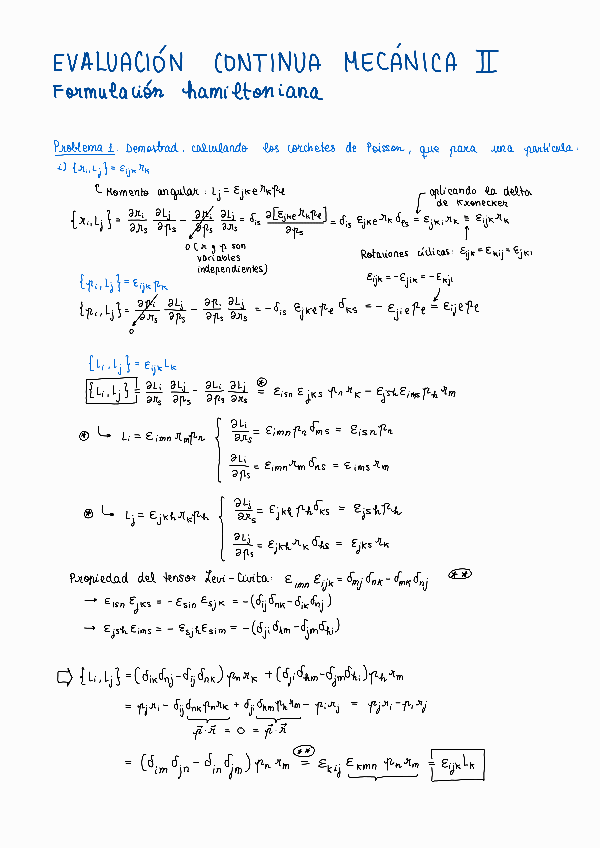 EVALUACIÓN CONTINUA MECÁNICA II
Formulación hamiltoniana
Problema 1. Demostrad, calculando los corchetes de Poisson, que para una partícula.
i) {xᵢ, Lⱼ} = εᵢⱼₖ xₖ
↳ Momento angular: Lⱼ = εⱼₖₑ xₖ pₑ
aplicando la delta
de Kronecker
{xᵢ, Lⱼ} = ∂xᵢ/∂xₛ ∂Lⱼ/∂pₛ − ∂xᵢ/∂pₛ ∂Lⱼ/∂xₛ = δᵢₛ ∂[εⱼₖₑ xₖ pₑ]/∂pₛ = δᵢₛ εⱼₖₑ xₖ δₑₛ = εⱼₖᵢ xₖ = εᵢⱼₖ xₖ
0 (x y p son
variables
independientes)
Rotaciones cíclicas: εᵢⱼₖ = εₖᵢⱼ = εⱼₖᵢ
εᵢⱼₖ = −εⱼᵢₖ = −εₖⱼᵢ
{pᵢ, Lⱼ} = εᵢⱼₖ pₖ
{pᵢ, Lⱼ} = ∂pᵢ/∂xₛ ∂Lⱼ/∂pₛ − ∂pᵢ/∂pₛ ∂Lⱼ/∂xₛ = −δᵢₛ εⱼₖₑ pₑ δₖₛ = − εⱼᵢₑ pₑ = εᵢⱼₑ pₑ
0
{Lᵢ, Lⱼ} = εᵢⱼₖ Lₖ
{Lᵢ, Lⱼ} = ∂Lᵢ/∂xₛ ∂Lⱼ/∂pₛ − ∂Lᵢ/∂pₛ ∂Lⱼ/∂xₛ =⊛ εᵢₛₙ εⱼₖₛ pₙ xₖ − εⱼₛₕ εᵢₘₛ pₕ xₘ
⊛ ↳ Lᵢ = εᵢₘₙ xₘ pₙ { ∂Lᵢ/∂xₛ = εᵢₘₙ pₙ δₘₛ = εᵢₛₙ pₙ
∂Lᵢ/∂pₛ = εᵢₘₙ xₘ δₙₛ = εᵢₘₛ xₘ
⊛ ↳ Lⱼ = εⱼₖₕ xₖ pₕ { ∂Lⱼ/∂xₛ = εⱼₖₕ pₕ δₖₛ = εⱼₛₕ pₕ
∂Lⱼ/∂pₛ = εⱼₖₕ xₖ δₕₛ = εⱼₖₛ xₖ
Propiedad del tensor Levi-Civita: εᵢₘₙ εᵢⱼₖ = δₘⱼ δₙₖ − δₘₖ δₙⱼ (**)
→ εᵢₛₙ εⱼₖₛ = − εₛᵢₙ εₛⱼₖ = −(δᵢⱼ δₙₖ − δᵢₖ δₙⱼ)
→ εⱼₛₕ εᵢₘₛ = − εₛⱼₕ εₛᵢₘ = −(δⱼᵢ δₕₘ − δⱼₘ δₕᵢ)
⇨ {Lᵢ, Lⱼ} = (δᵢₖ δₙⱼ − δᵢⱼ δₙₖ) pₙ xₖ + (δⱼᵢ δₕₘ − δⱼₘ δₕᵢ) pₕ xₘ
= pⱼ xᵢ − δᵢⱼ δₙₖ pₙ xₖ + δⱼᵢ δₕₘ pₕ xₘ − pᵢ xⱼ = pⱼ xᵢ − pᵢ xⱼ
p⃗·x⃗ = 0 = p⃗·x⃗
= (δᵢₘ δⱼₙ − δᵢₙ δⱼₘ) pₙ xₘ =(**) εₖᵢⱼ εₖₘₙ pₙ xₘ = εᵢⱼₖ Lₖ